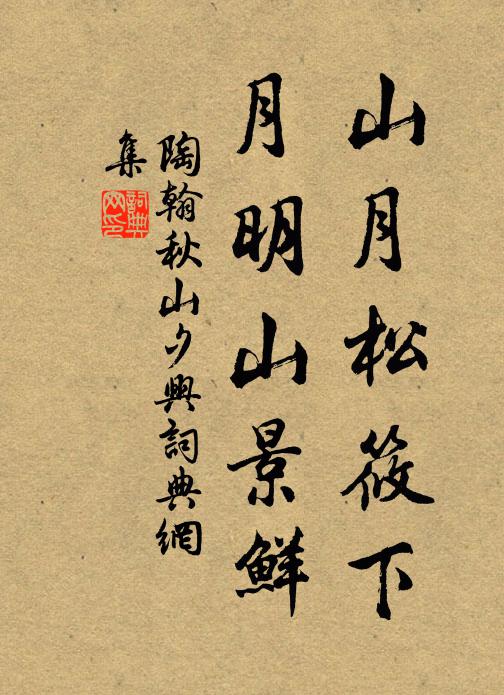 山月松筱下
月明山景鮮
陶翰秋山夕興詞典網
集
詞典
网印